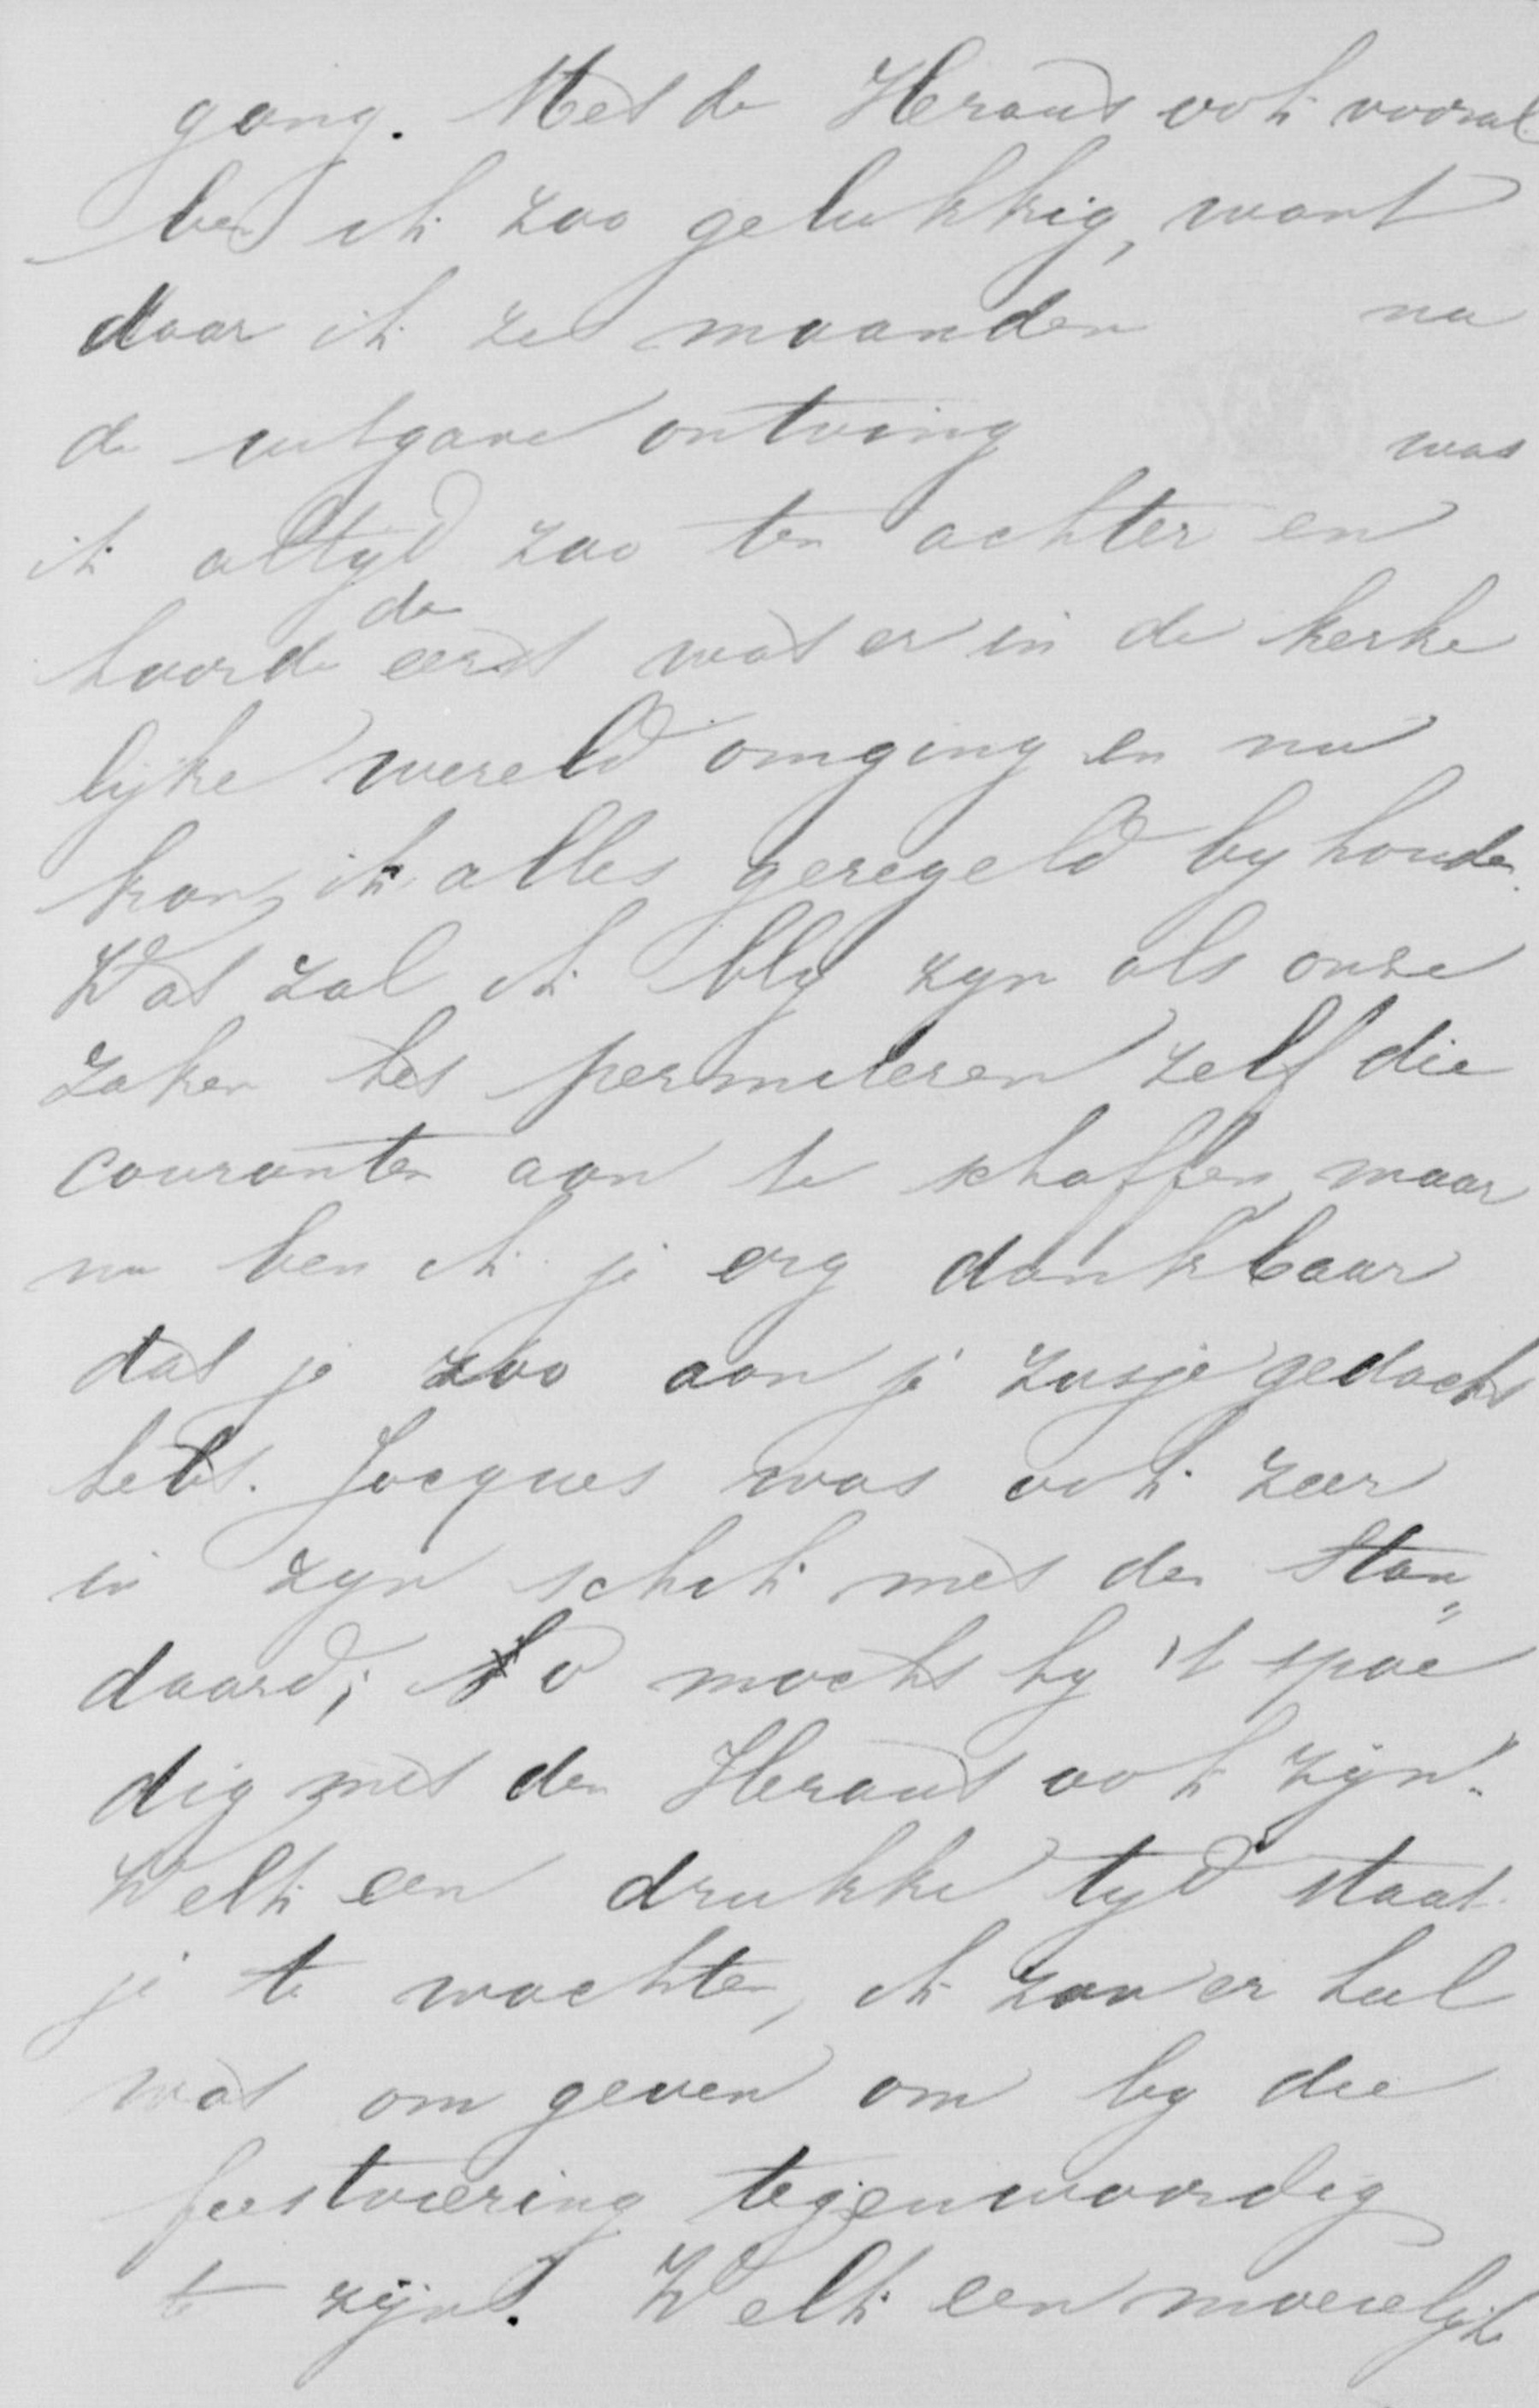 gang. Met de Heraut ook vooral
ben ik zoo gelukkig, want
daar ik ze maanden na
de uitgave ontving was
ik altyd zoo ten achter en
hoorde dan eerst wat er in de kerke
lijke wereld omging en nu
kan ik alles geregeld by houden.
Wat zal ik bly zyn als onze
zaken het permiteren zelf die
couranten aan te schaffen, maar
nu ben ik je erg dankbaar
dat je zoo aan je zusje gedacht
hebt. Jacques was ook zeer
in zyn schik met den Stan„
daard; o mocht hy 't spoe
dig met den Heraut ook zijn.
Welk een drukke tyd staat
je te wachten, ik zou er heel
wat om geven om by die
feestviering tegenwoordig
te zijn. Welk een moeielijke